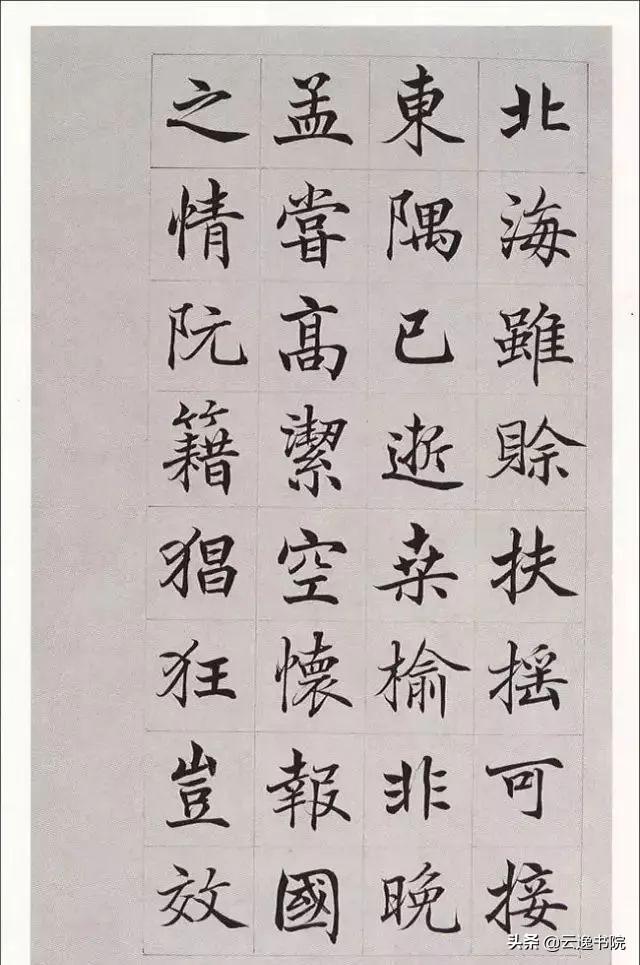 北海雖賒扶摇可接
東隅已逝桒榆非晚
孟嘗高潔空懷報國
之情阮籍猖狂豈效
头条 @云逸书院